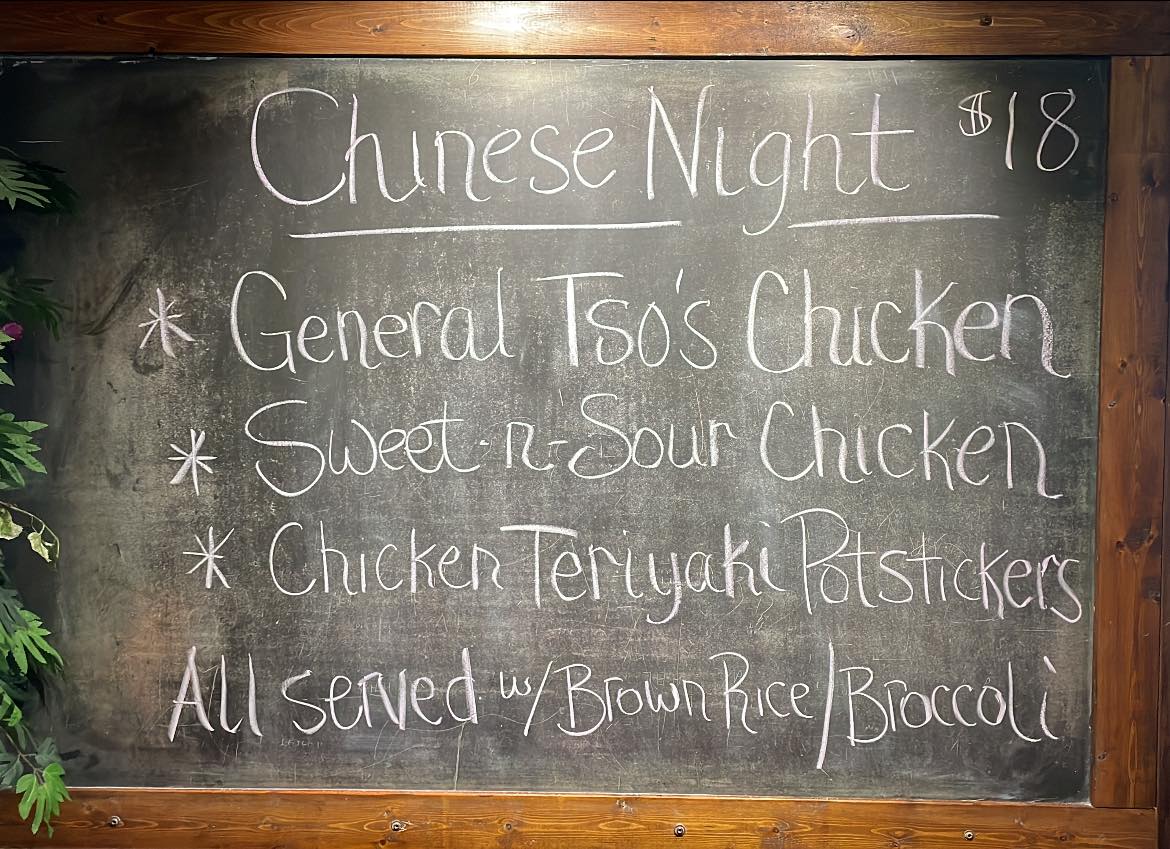 Chinese Night $18
* General Tso's Chicken
* Sweet-n-Sour Chicken
* Chicken Teriyaki Potstickers
All served w/ Brown Rice/Broccoli